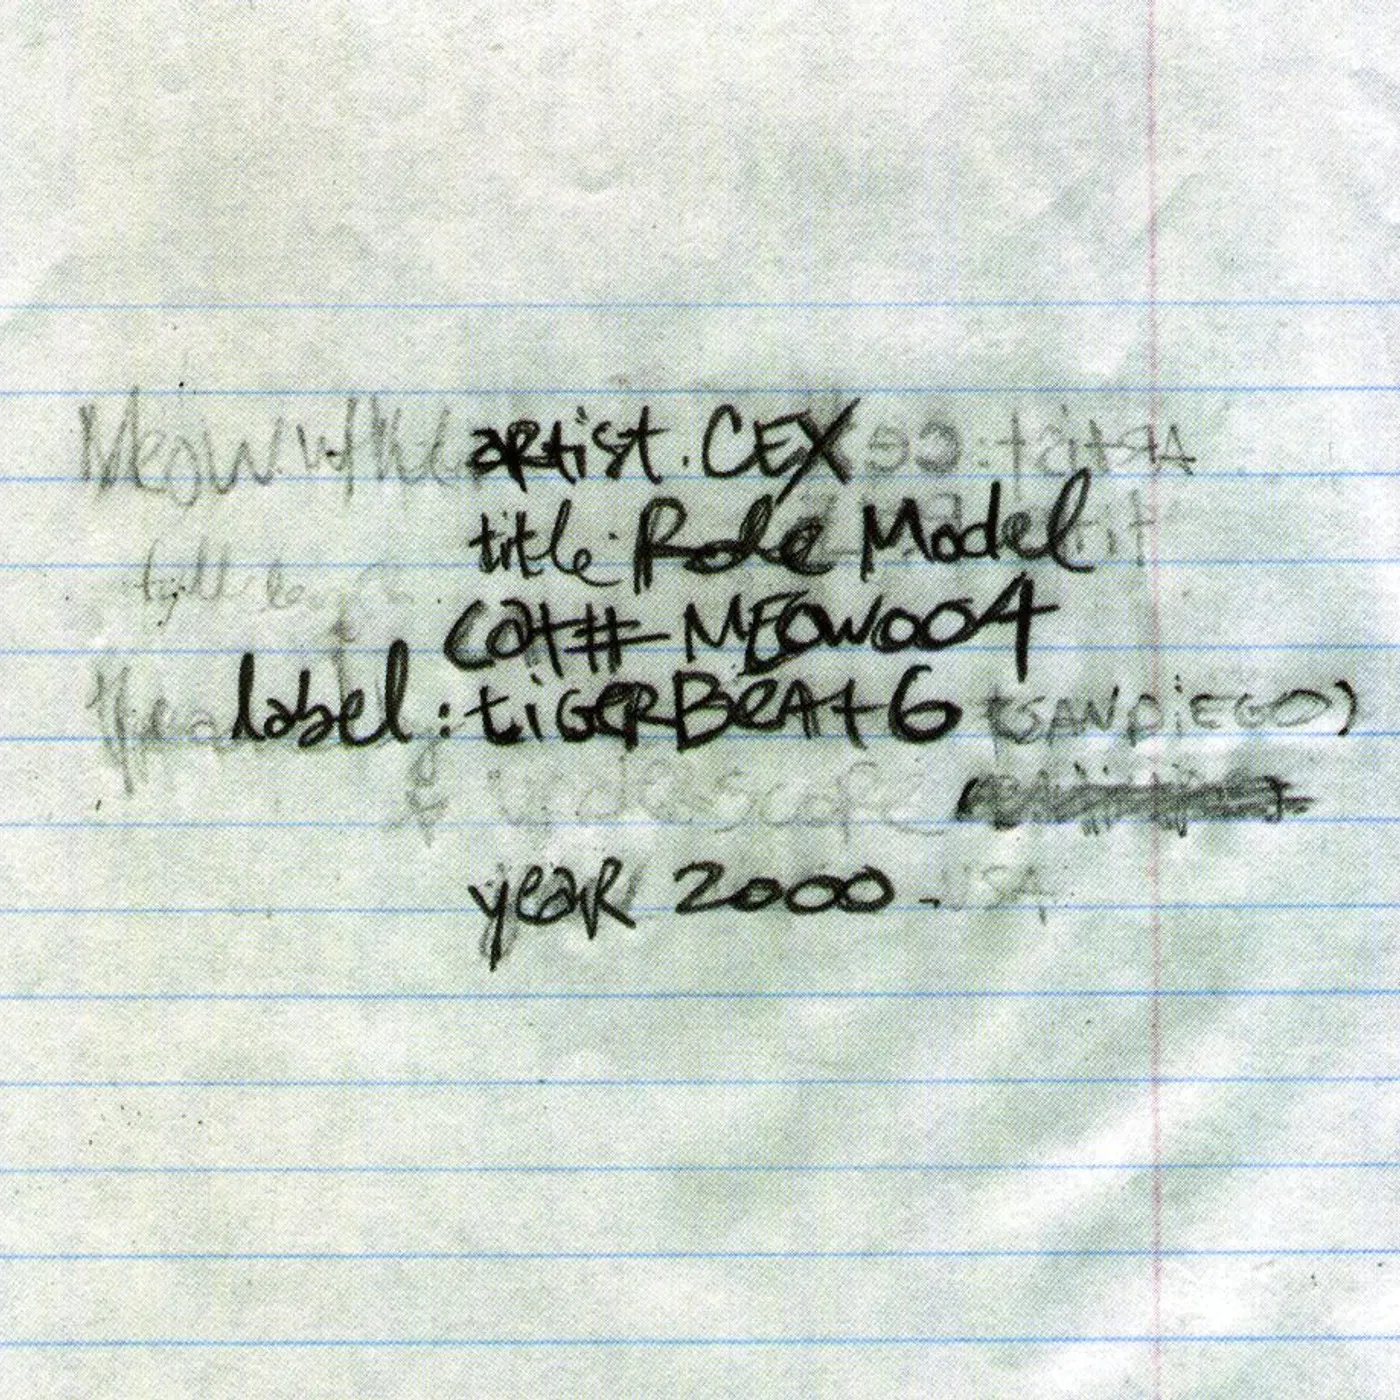 artist. CEX
title: Role Model
cat# MEOW004
label: tiGERBEAt 6 (SANDiEGO)
year 2000. USA